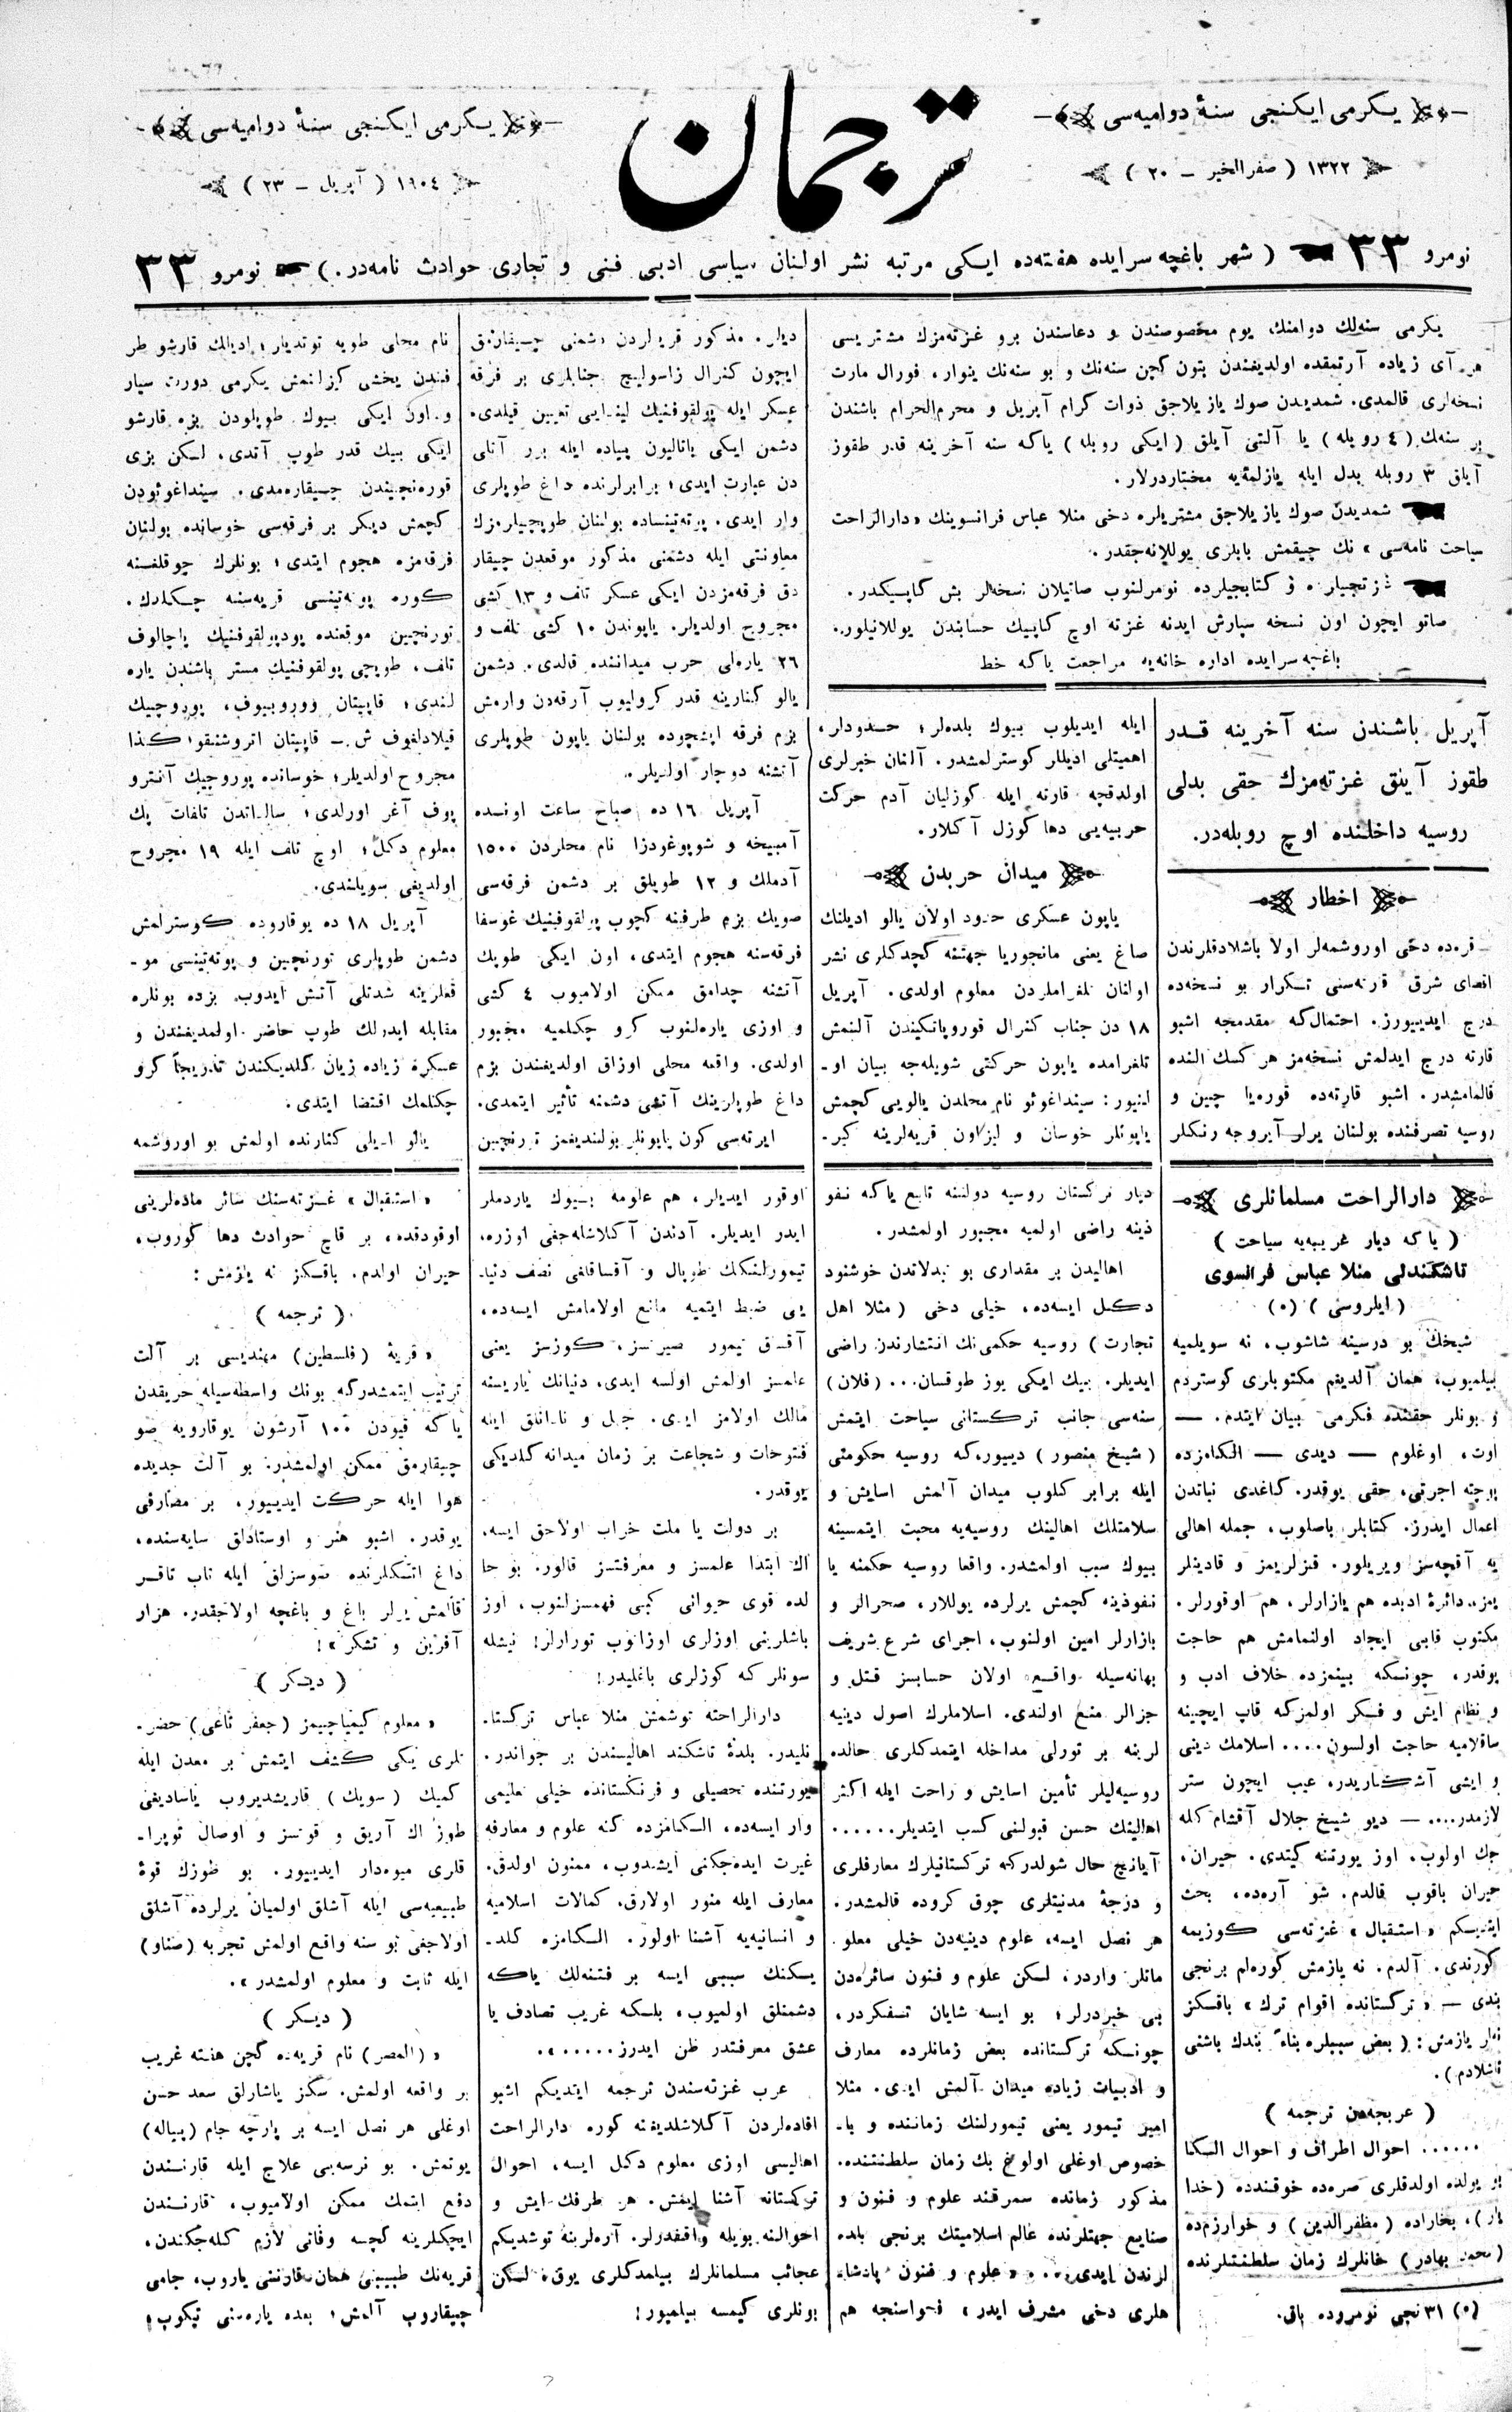 یکرمی ایکنجی سنهٔ دوامیه‌سی
١٣٢٢ ( صفرالخیر ـ ٢٠ )
ترجمان
یکرمی ایکنجی سنهٔ دوامیه‌سی
١٩٠٤ ( آپریل ـ ٢٣ )
نومرو ٣٣ ( شهر باغچه سرایده هفته‌ده ایکی مرتبه نشر اولنان سیاسی ادبی فنی و تجاری حوادث نامه‌در. ) نومرو ٣٣
یکرمی سنه‌لك دوامنك، یوم مخصوصندن و دعاسندن برو غزته‌مزك مشتریسی
هر آی زیاده آرتمقده اولدیغندن بتون کچن سنه‌نك و بو سنه‌نك ینوار، فورال مارت
نسخه‌لری قالمدی. شمدیدن صوك یازیلاجق ذوات کرام آپریل و محرم‌الحرام باشندن
بر سنه‌لك (٤ روبله) یا آلتی آیلق (ایکی روبله) یاکه سنه آخرینه قدر طقوز
آیلق ٣ روبله بدل ایله یازلمغه مختاردرلار.
شمدیدن صوك یازیلاجق مشتریلره دخی منلا عباس فرانسوینك «دارالراحت
سیاحت نامه‌سی» نك چیقمش بابلری یوللانه‌جقدر.
غزتجیلرده و کتابجیلرده نومرلنوب صاتیلان نسخه‌لر بش کاپیکدر.
صاتو ایچون اون نسخه سپارش ایدنه غزته اوچ کاپیك حسابندن یوللانیلور.
باغچه سرایده اداره خانه‌یه مراجعت یاکه خط
آپریل باشندن سنه آخرینه قدر
طقوز آیلق غزته‌مزك حقی بدلی
روسیه داخلنده اوچ روبله‌در.
اخطار
ـ قره‌ده دخی اوروشمه‌لر اولا باشلادقلرندن
اقصای شرق قارته‌سنی تکرار بو نسخه‌ده
درج ایدییورز. احتمال‌که مقدمجه اشبو
قارته درج ایدلمش نسخه‌مز هر کسك النده
قالمامشدر. اشبو قارته‌ده قوره‌یا چین و
روسیه تصرفنده بولنان یرلر آیروجه رنکلر
ایله ایدیلوب بیوك بلده‌لر؛ حدودلار،
اهمیتلی ادیللار کوسترلمشدر. آلنان خبرلری
اولدقچه قارته ایله کوزلیان آدم حرکت
حربیه‌یی دها کوزل آکلار.
میدان حربدن
یاپون عسکری حدود اولان یالو ادیلنك
صاغ یعنی مانجوریا جهتنه کچدکلری نشر
اولنان تلغراملردن معلوم اولدی. آپریل
١٨ دن جناب کنرال قوروپاتکیندن آلنمش
تلغرامده یاپون حرکتی شویله‌جه بیان او ـ
لنیور: سینداغوئو نام محلدن یالویی کچمش
یاپونلر خوسان و لیزاون قریه‌لرینه کیر ـ
دیلر. مذکور قریه‌لردن دشمنی چیقارمق
ایچون کنرال زاسولیچ جنابلری بر فرقه
عسکر ایله پولقوفنیك لیندایی تعیین قیلدی.
دشمن ایکی باتالیون پیاده ایله بر آتلی
دن عبارت ایدی؛ برابرلرنده داغ طوپلری
وار ایدی. پوته‌تینساده بولنان طوپچیلرمزك
معاونتی ایله دشمنی مذکور موقعدن چیقار
دق فرقه‌مزدن ایکی عسکر تلف و ١٣ کشی
مجروح اولدیلر. یاپوندن ١٠ کشی تلف و
٢٦ یاره‌لی حرب میداننده قالدی. دشمن
یالو کنارینه قدر کرولیوب آرقه‌دن وارمش
بزم فرقه اینچوده بولنان یاپون طوپلری
آتشنه دوچار اولدیلر.
آپریل ١٦ ده صباح ساعت اونسده
آمبیخه و شوپوغودزا نام محلردن ١٥٠٠
آدملك و ١٢ طوپلق بر دشمن فرقه‌سی
صویك بزم طرفینه کچوب پولقوفنیك غوسفا
فرقه‌سنه هجوم ایتدی، اون ایکی طوپك
آتشنه چدامق ممکن اولامیوب ٤ کشی
و اوزی یاره‌لنوب کرو چکلمیه مجبور
اولدی. واقعه محلی اوزاق اولدیغندن بزم
داغ طوپلرینك آتشی دشمنه تأثیر ایتمدی.
ایرته‌سی کون یاپونلر بولندیغمز تورنچین
نام محلی طوپه توتدیلر؛ ادیالك قارشو طر
فندن یخشی کیزلنمش یکرمی دورت سیار
و اون ایکی بیوك طوپلودن بزه قارشو
ایکی بیك قدر طوپ آتدی، لسکن بزی
تورنچیندن چیقاره‌مدی. سینداغوئودن
کچمش دیکر بر فرقه‌سی خوسانده بولنان
فرقه‌مزه هجوم ایتدی؛ بونلرك چوقلغنه
کوره پوته‌تینسی قریه‌سنه چکلدك.
تورنچین موقعنده پودپولقوفنیك پاچالوف
تلف، طوپچی پولقوفنیك مستر باشندن یاره
لندی؛ قاپیتان ووروبیوف، پوروچیك
فیلادلفوف ش. ـ قاپیتان اتروشنقو؛ کذا
مجروح اولدیلر؛ خوسانده پوروچیك آنترو
پوف آغر اورلدی؛ سالداتدن تلفات پك
معلوم دکل؛ اوچ تلف ایله ١٩ مجروح
اولدیغی سویلندی.
آپریل ١٨ ده یوقاروده کوسترلمش
دشمن طوپلری تورنچین و پوته‌تینسی مو ـ
قعلرینه شدتلی آتش ایدوب، بزده بونلره
مقابله ایدرلك طوپ حاضر اولمدیغندن و
عسکره زیاده زیان کلدیکندن تدریجاً کرو
چکلمك اقتضا ایتدی.
یالو ادیلی کنارنده اولمش بو اوروشمه
دارالراحت مسلمانلری
( یاکه دیار غریبه‌یه سیاحت )
تاشکندلی منلا عباس فرانسوی
( ایلروسی ) (٥)
شیخك بو درسینه شاشوب، نه سویلمیه
بیلمیوب، همان آلدیغم مکتوبلری کوستردم
و بونلر حقنده فکرمی بیان ایتدم. —
اوت، اوغلوم — دیدی — الکه‌مزده
پوچته اجرتی، حقی یوقدر. کاغدی نباتدن
اعمال ایدرز. کتابلر باصلوب، جمله اهالی
یه آقچه‌سز ویریلور. قزلریمز و قادینلر
یمز دائرهٔ ادبده هم یازارلر، هم اوقورلر.
مکتوب قابی ایجاد اولنمامش هم حاجت
یوقدر، چونکه بینمزده خلاف ادب و
و نظام ایش و فکر اولمزکه قاپ ایچینه
ساقلامیه حاجت اولسون.... اسلامك دینی
و ایشی آشکاریدر، عیب ایچون ستر
لازمدر.... — دیو شیخ جلال آقشام کله
جك اولوب، اوز یورتنه کیتدی. حیران،
حیران باقوب قالدم. شو آره‌ده، بحث
ایتدیکم «استقبال» غزته‌سی کوزیمه
کورندی. آلدم. نه یازمش کوره‌لم برنجی
بندی — «ترکستانده اقوام ترك» باقسکز
نه‌لر یازمش: (بعض سببلره بناءً بندك باشنی
تاشلادم).
( عربجه‌دن ترجمه )
...... احوال اطراف و احوال الکا
بو یولده اولدقلری صره‌ده خوقندده (خدا
یار)، بخاراده (مظفرالدین) و خوارزم‌ده
(محمد بهادر) خانلرك زمان سلطنتلرنده
(٥) ٣١ نجی نومروده باق.
دیار ترکستان روسیه دولتنه تابع یاکه نفو
ذینه راضی اولمیه مجبور اولمشدر.
اهالیدن بر مقداری بو تبدلاتدن خوشنود
دکل ایسه‌ده، خیلی دخی (مثلا اهل
تجارت) روسیه حکمی‌نك انتشارندن راضی
ایدیلر. بیك ایکی یوز طوقسان... (فلان)
سنه‌سی جانب ترکستانی سیاحت ایتمش
(شیخ منصور) دییورکه روسیه حکومتی
ایله برابر کلوب میدان آلمش اسایش و
سلامتلك اهالینك روسیه‌یه محبت ایتمسینه
بیوك سبب اولمشدر. واقعا روسیه حکمنه یا
نفوذینه کچمش یرلرده یوللار، صحرالر و
بازارلر امین اولنوب، اجرای شرع شریف
بهانه‌سیله واقع اولان حسابسز قتل و
جزالر منع اولندی. اسلاملرك اصول دینیه
لرینه بر تورلی مداخله ایتمدکلری حالده
روسیه‌لیلر تأمین اسایش و راحت ایله اکثر
اهالینك حسن قبولنی کسب ایتدیلر......
آیانچ حال شولدرکه ترکستانیلرك معارفلری
و درجهٔ مدنیتلری چوق کروده قالمشدر.
هر نصل ایسه، علوم دینیه‌دن خیلی معلو.
ماتلر واردر، لسکن علوم و فنون سائره‌دن
بی خبردرلر؛ بو ایسه شایان تسفکردر،
چونسکه ترکستانده بعض زمانلرده معارف
و ادبیات زیاده میدان آلمش ایدی. مثلا
امیر تیمور یعنی تیمورلنك زماننده و با ـ
خصوص اوغلی اولوغ بك زمان سلطنتنده.
مذکور زمانده سمرقند علوم و فنون و
صنایع جهتلرنده عالم اسلامیتك برنجی بلده
لرندن ایدی... «علوم و فنون پادشاه
هلری دخی مشرف ایدر» فحواسنجه هم
اوقور ایدیلر، هم علومه بیوك یاردملر
ایدر ایدیلر. آدندن آکلاشله‌جغی اوزره،
تیمورلنکك طوپال و آقساقلغی نصف دنیا
یی ضبط ایتمیه مانع اولامامش ایسه‌ده،
آقسق تیمور صبرسز، کوزسز یعنی
علمسز اولمش اولسه ایدی، دنیانك یاریسنه
مالك اولامز ایدی. جهل و نادانلق ایله
فتوحات و شجاعت بر زمان میدانه کلدیکی
یوقدر.
بر دولت یا ملت خراب اولاجق ایسه،
اك ابتدا علمسز و معرفتسز قالور. بو حا
لده قوی حیوانی کبی فهمسزلنوب، اوز
باشلرینی اوزلری اوزاتوب تورارلر! نیشله
سونلر که کوزلری باغلیدر!
دارالراحته توشمش منلا عباس ترکستا.
نلیدر. بلدهٔ تاشکند اهالیسندن بر جواندر.
یورتنده تحصیلی و فرنکستانده خیلی علیمی
وار ایسه‌ده، الکامزده کنه علوم و معارفه
غیرت ایده‌جکنی ایشیدوب، ممنون اولدق.
معارف ایله منور اولارق، کمالات اسلامیه
و انسانیه‌یه آشنا اولور. الکامزه کلد ـ
یسکنك سببی ایسه بر فتنه‌لك یاکه
دشمنلق اولمیوب، بلسکه غریب تصادف یا
عشق معرفتدر ظن ایدرز......».
عرب غزته‌سندن ترجمه ایتدیکم اشبو
افاده‌لردن آکلاشلدیغنه کوره دارالراحت
اهالیسی اوزی معلوم دکل ایسه، احوال
ترکستانه آشنا ایمش. هر طرفك ایش و
احوالنه بویله واقفدرلر. آره‌لرینه توشدیکم
عجائب مسلمانلرك بیلمدکلری یوق، لسکن
بونلری کیمسه بیلمیور!
«استقبال» غزته‌سنك سائر ماده‌لرینی
اوقودقده، بر قاچ حوادث دها کوروب،
حیران اولدم. باقسکز نه یازمش:
( ترجمه )
«قریهٔ (فلسطین) مهندیسی بر آلت
ترتیب ایتمشدرکه بونك واسطه‌سیله حریقدن
یاکه قیودن ١٠٠ آرشون یوقارویه صو
چیقارمق ممکن اولمشدر. بو آلت جدیده
هوا ایله حرکت ایدییور، بر مصارفی
یوقدر. اشبو هنر و اوستادلق سایه‌سنده،
داغ اتسکلرنده صوسزلق ایله تاب تاقر
قالمش یرلر باغ و باغچه اولاجقدر. هزار
آفرین و تشکر»!
( دیکر )
«معلوم کیمیاچیمز (جعفر ثاغی) حضر.
تلری یکی کشف ایتمش بر معدن ایله
کمیك (سویك) قاریشدیروب یاسادیغی
طوز اك آریق و قوتسز و اوصال توپرا ـ
قلری میوه‌دار ایدییور. بو طوزك قوهٔ
طبیعیه‌سی ایله آشلق اولمیان یرلرده آشلق
اولاجغی بو سنه واقع اولمش تجربه (صناو)
ایله ثابت و معلوم اولمشدر».
( دیکر )
«(المصر) نام قریه‌ده کچن هفته غریب
بر واقعه اولمش. سکز یاشارلق سعد حسن
اوغلی هر نصل ایسه بر پارچه جام (پیاله)
یوتمش. بو نرسه‌یی علاج ایله قارنندن
دفع ایتمك ممکن اولامیوب، قارنندن
ایچکلرینه کچسه وفاتی لازم کله‌جکندن،
قریه‌نك طبیبی همان قارننی یاروب، جامی
چیقاروپ آلمش؛ بعده یاره‌سنی تیکوپ؛